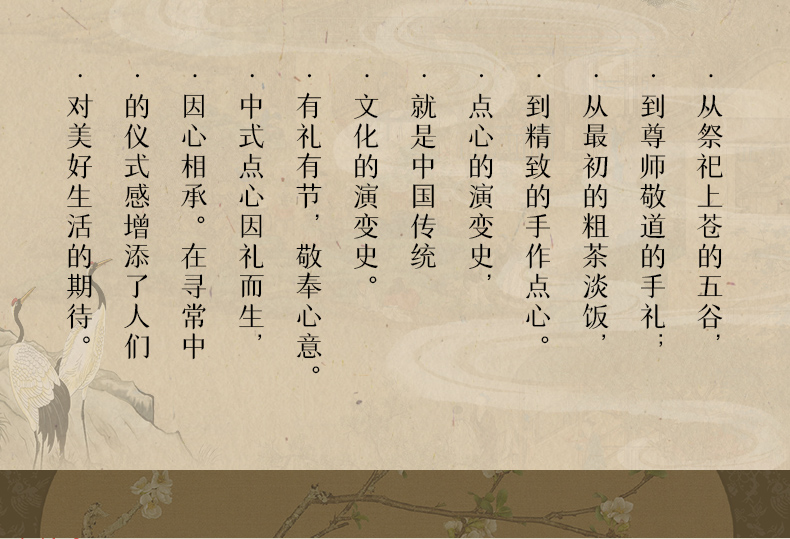 ·从祭祀上苍的五谷，
·到尊师敬道的手礼；
·从最初的粗茶淡饭，
·到精致的手作点心。
·点心的演变史，
·就是中国传统
·文化的演变史。
·有礼有节，敬奉心意。
·中式点心因礼而生，
·因心相承。在寻常中
·的仪式感增添了人们
·对美好生活的期待。